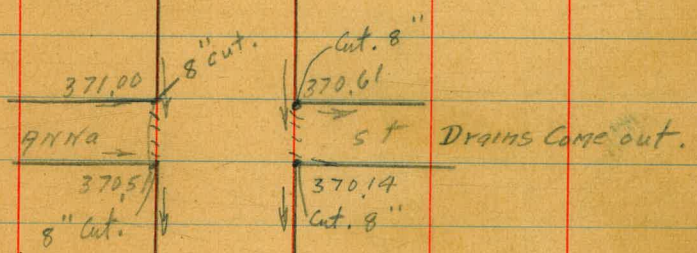 8" cut.
Cut. 8"
371.00
370.61
ANNa
st
Drains Come out.
370.51
370.14
8" Cut.
Cut. 8"